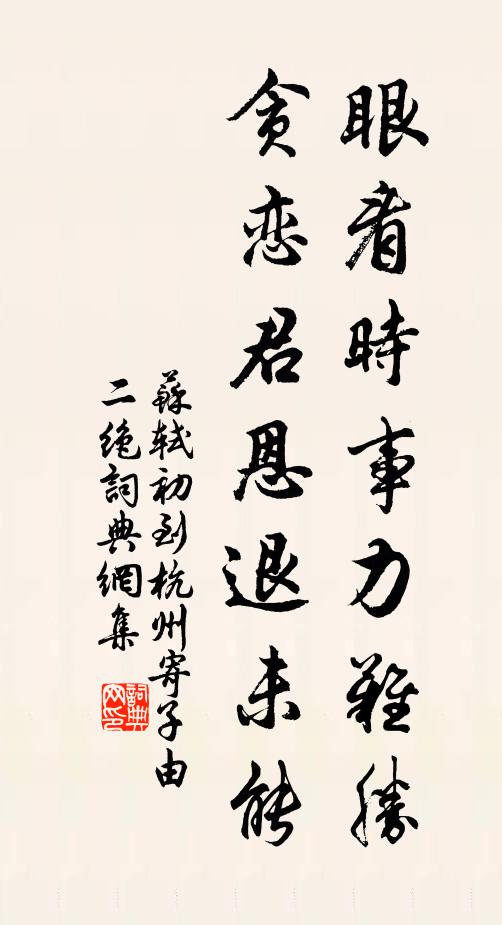 眼看時事力難勝
貪恋君恩退未能
蘇軾初到杭州寄子由
二絶詞典網集
詞典
网印